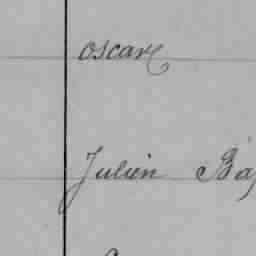 oscar
Julien